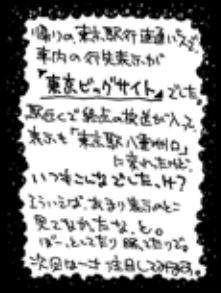 帰りの、東京駅行直通バスで、
車内の行先表示が
『東京ビッグサイト』でした。
駅近くで終点の放送が入って、
表示も「東京駅八重洲口」
に変わったけど、
いつもこんなでした、け?
そういえば、あまり表示のとこ
見てなかったな、と。
ぼーっとしてたり 眠ってたりで。
次回は一寸 注目してみます。